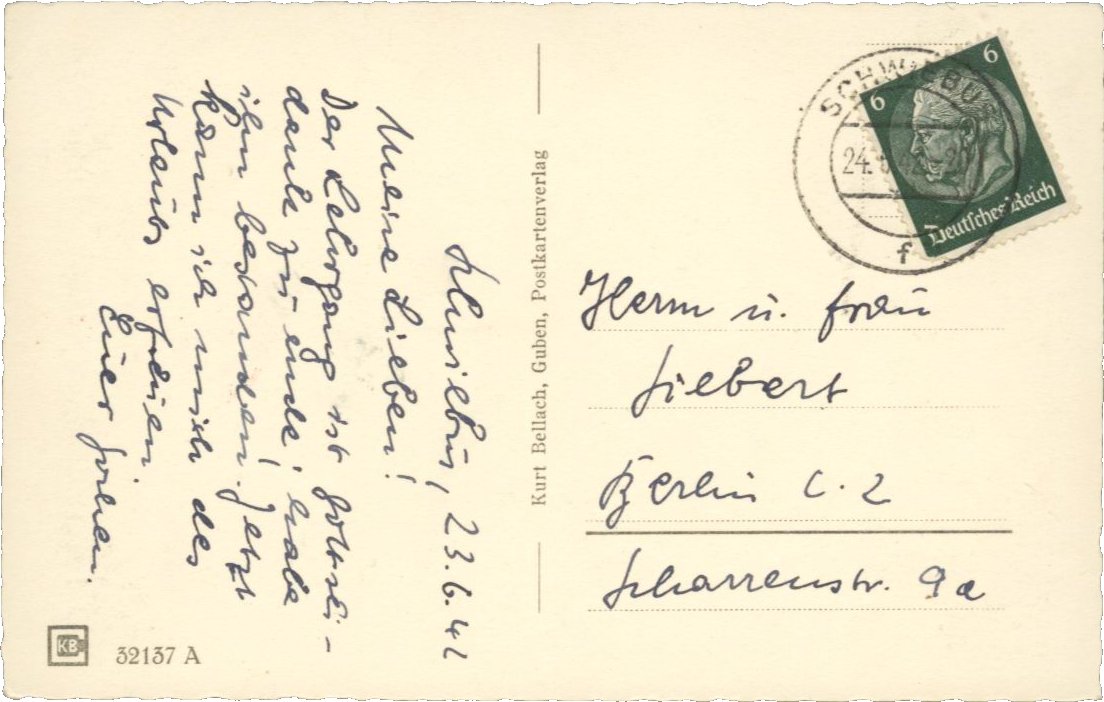 Schwiebus, 23.6.42
Meine Lieben!
Der Lehrgang ist Gottsei-
dank zu ende, habe
ihn bestanden! Jetzt
kann ich mich des
Urlaubs erfreuen
Euer Jochen.
32137 A
KB
Kurt Bellach, Guben, Postkartenverlag
SCHWIEBU
24.
f
6
6
Deutsches Reich
Herrn u. Frau
Siebert
Berlin C. 2
Scharrenstr. 9a